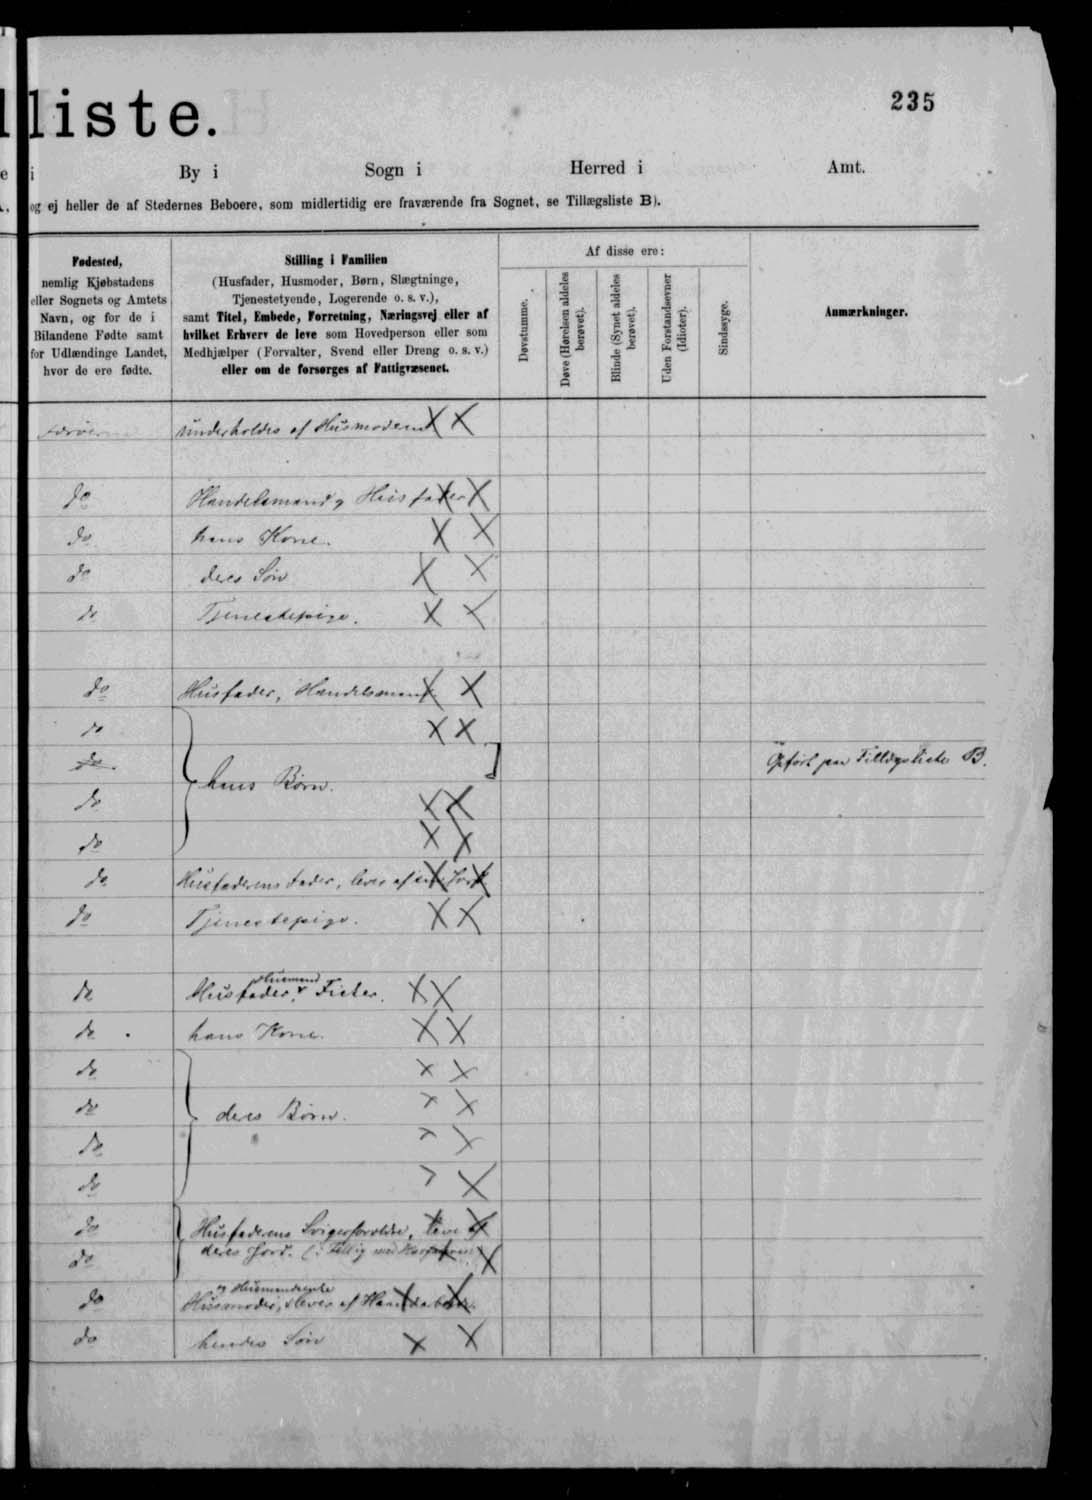 liste.
235
i By i Sogn i Herred i Amt.
og ej heller de af Stedernes Beboere, som midlertidig ere fraværende fra Sognet, se Tillægsliste B).
Fødested,
nemlig Kjøbstadens
eller Sognets og Amtets
Navn, og for de i
Bilandene Fødte samt
for Udlændinge Landet,
hvor de ere fødte.
Stilling i Familien
(Husfader, Husmoder, Børn, Slægtninge,
Tjenestetyende, Logerende o. s. v.),
samt Titel, Embede, Forretning, Næringsvej eller af
hvilket Erhverv de leve som Hovedperson eller som
Medhjælper (Forvalter, Svend eller Dreng o. s. v.)
eller om de forsørges af Fattigvæsenet.
Af disse ere:
Døvstumme.
Døve (Hørelsen aldeles
berøvet).
Blinde (Synet aldeles
berøvet).
Uden Forstandsevner
(Idioter).
Sindssyge.
Anmærkninger.
underholdes af Husmoderen
do Handelsmand, Husfader
do hans Kone.
do deres Søn
do Tjenestepige.
do Husfader, Handelsmand
do
do Opført paa Tillægsliste B.
hans Børn.
do
do
do Husfaderens Fader, lever af sin Jord
do Tjenestepige.
Husmand
do Husfader, Fisker.
do hans Kone.
do
do deres Børn.
do
do
do Husfaderens Svigerforældre, leve af
do deres Jord.
og Husmandsenke
do Husmoder, lever af Haandarbeide.
do hendes Søn